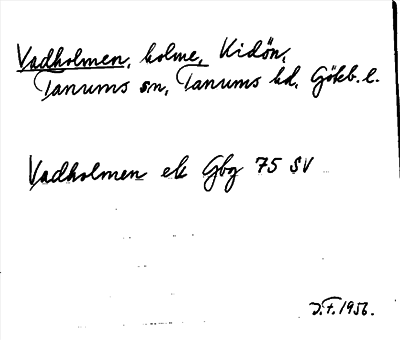 Vadholmen, holme, Kidön,
Tanums sn, Tanums hd, Gökb. l.
Vadholmen ek Gbg 75 SV
J.F. 1956.